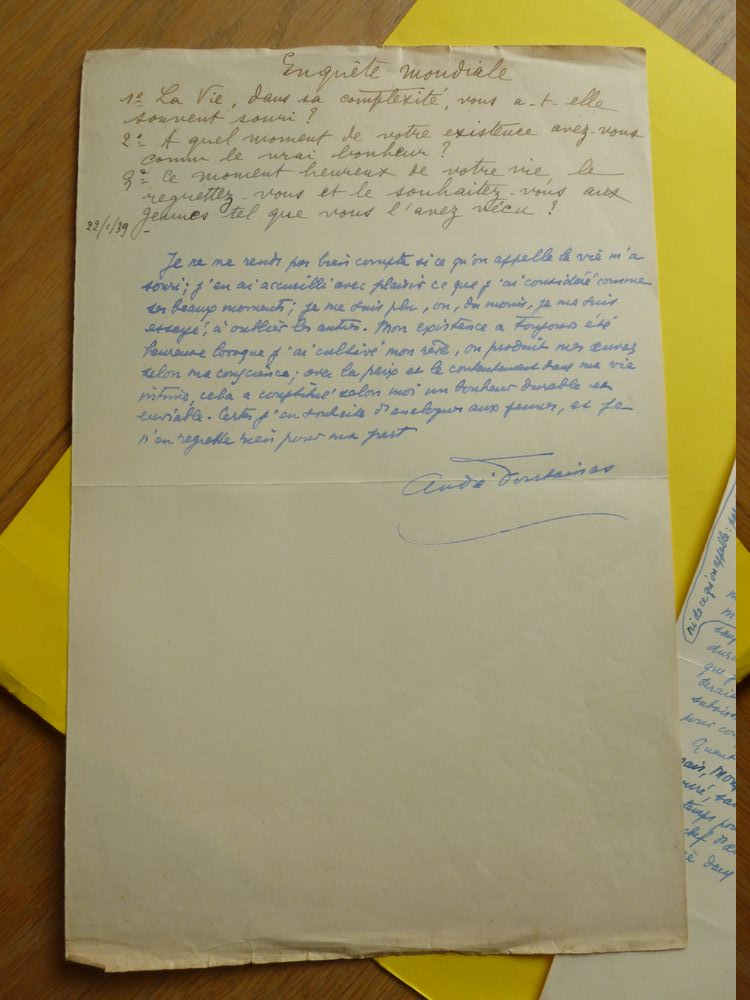 Enquête mondiale
1º La Vie, dans sa complexité, vous a-t-elle
souvent souri ?
2º A quel moment de votre existence avez-vous
connu le vrai bonheur ?
3º Ce moment heureux de votre vie, le
regrettez-vous et le souhaitez-vous aux
jeunes tel que vous l'avez vécu ?
22/1/39
Je ne me rends pas bien compte si ce qu'on appelle la vie m'a
souri ; j'en ai accueilli avec plaisir ce que j'ai considéré comme
ses beaux moments ; je me suis plu, ou, du moins, je me suis
essayé, à oublier les autres. Mon existence a toujours été
heureuse lorsque j'ai cultivé mon rêve, ou produit mes œuvres
selon ma conscience ; avec la paix et le contentement dans ma vie
intime, cela a constitué selon moi un bonheur durable et
enviable. Certes j'en souhaite d'analogues aux jeunes, et je
n'en regrette rien pour ma part
André Fontainas
ni de ce qu'on appelle
que
pour
Quant
temps
chef d'
dans